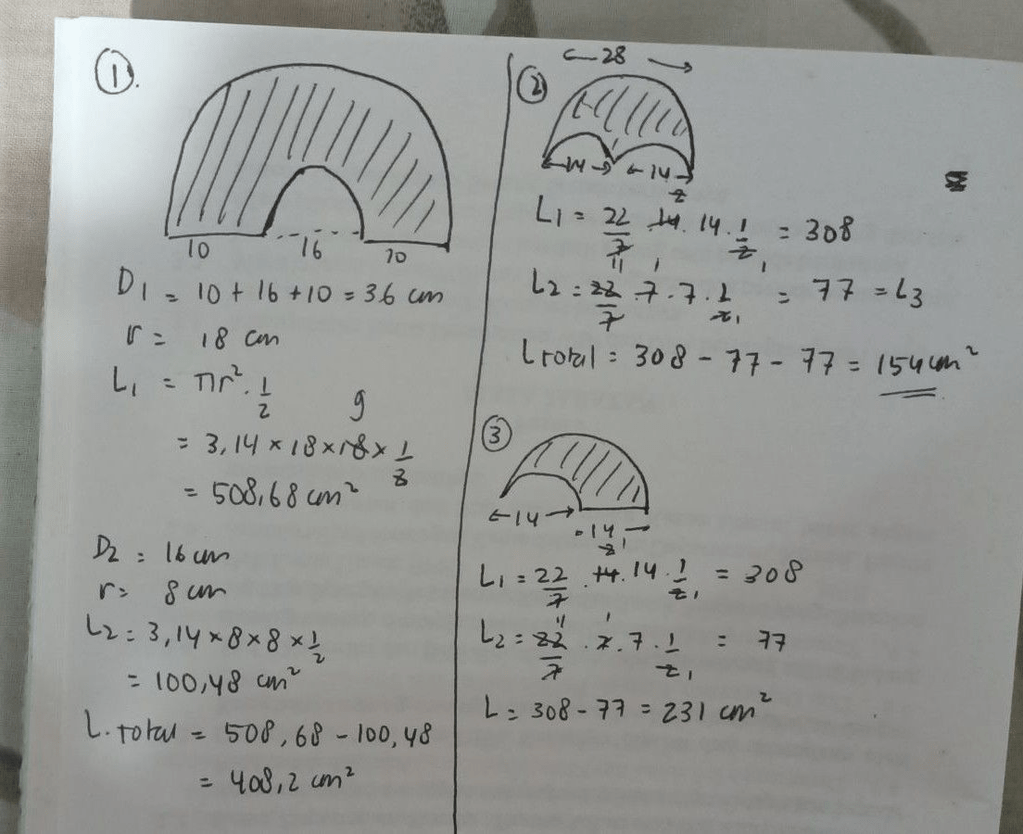 1.
10 16 10
D1 = 10 + 16 + 10 = 36 cm
r = 18 cm
L1 = πr². 1/2
9
= 3,14 × 18 × 18 × 1/2
= 508,68 cm²
D2 = 16 cm
r = 8 cm
L2 = 3,14 × 8 × 8 × 1/2
= 100,48 cm²
L. total = 508,68 - 100,48
= 408,2 cm²
2
28
14 14
2
L1 = 22/7 14. 14. 1/2 = 308
11 1 1
L2 = 22/7 . 7 . 7 . 1/2 = 77 = L3
L total = 308 - 77 - 77 = 154 cm²
3
14 14
2 1
L1 = 22/7 . 14. 14. 1/2 1 = 308
11 1
L2 = 22/7 . 7 . 7 . 1/2 1 = 77
L = 308 - 77 = 231 cm²